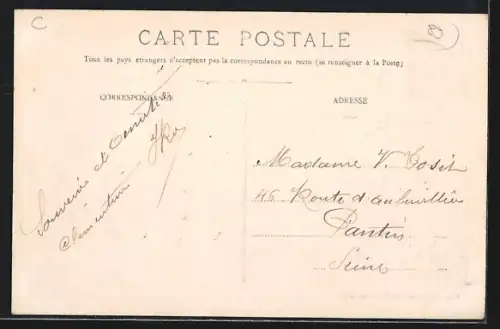 C
83
CARTE POSTALE
Tous les pays étrangers n'acceptent pas la correspondance au recto (se renseigner à la Poste)
CORRESPONDANCE
ADRESSE
Souvenir et
Clémentine
Madame V.
46 Route d'aubervilliers
Pantin
Seine